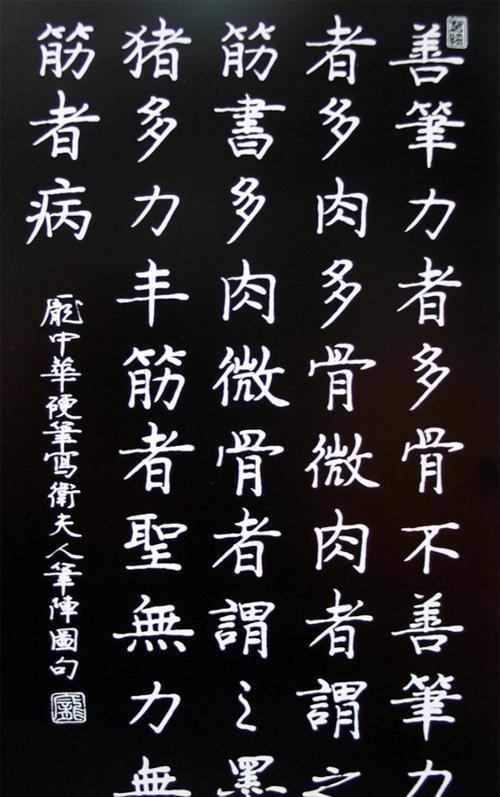 善筆力者多骨不善筆力
者多肉多骨微肉者謂之
筋書多肉微骨者謂之墨
猪多力丰筋者聖無力無
筋者病
龐中華硬筆寫衛夫人筆陣圖句